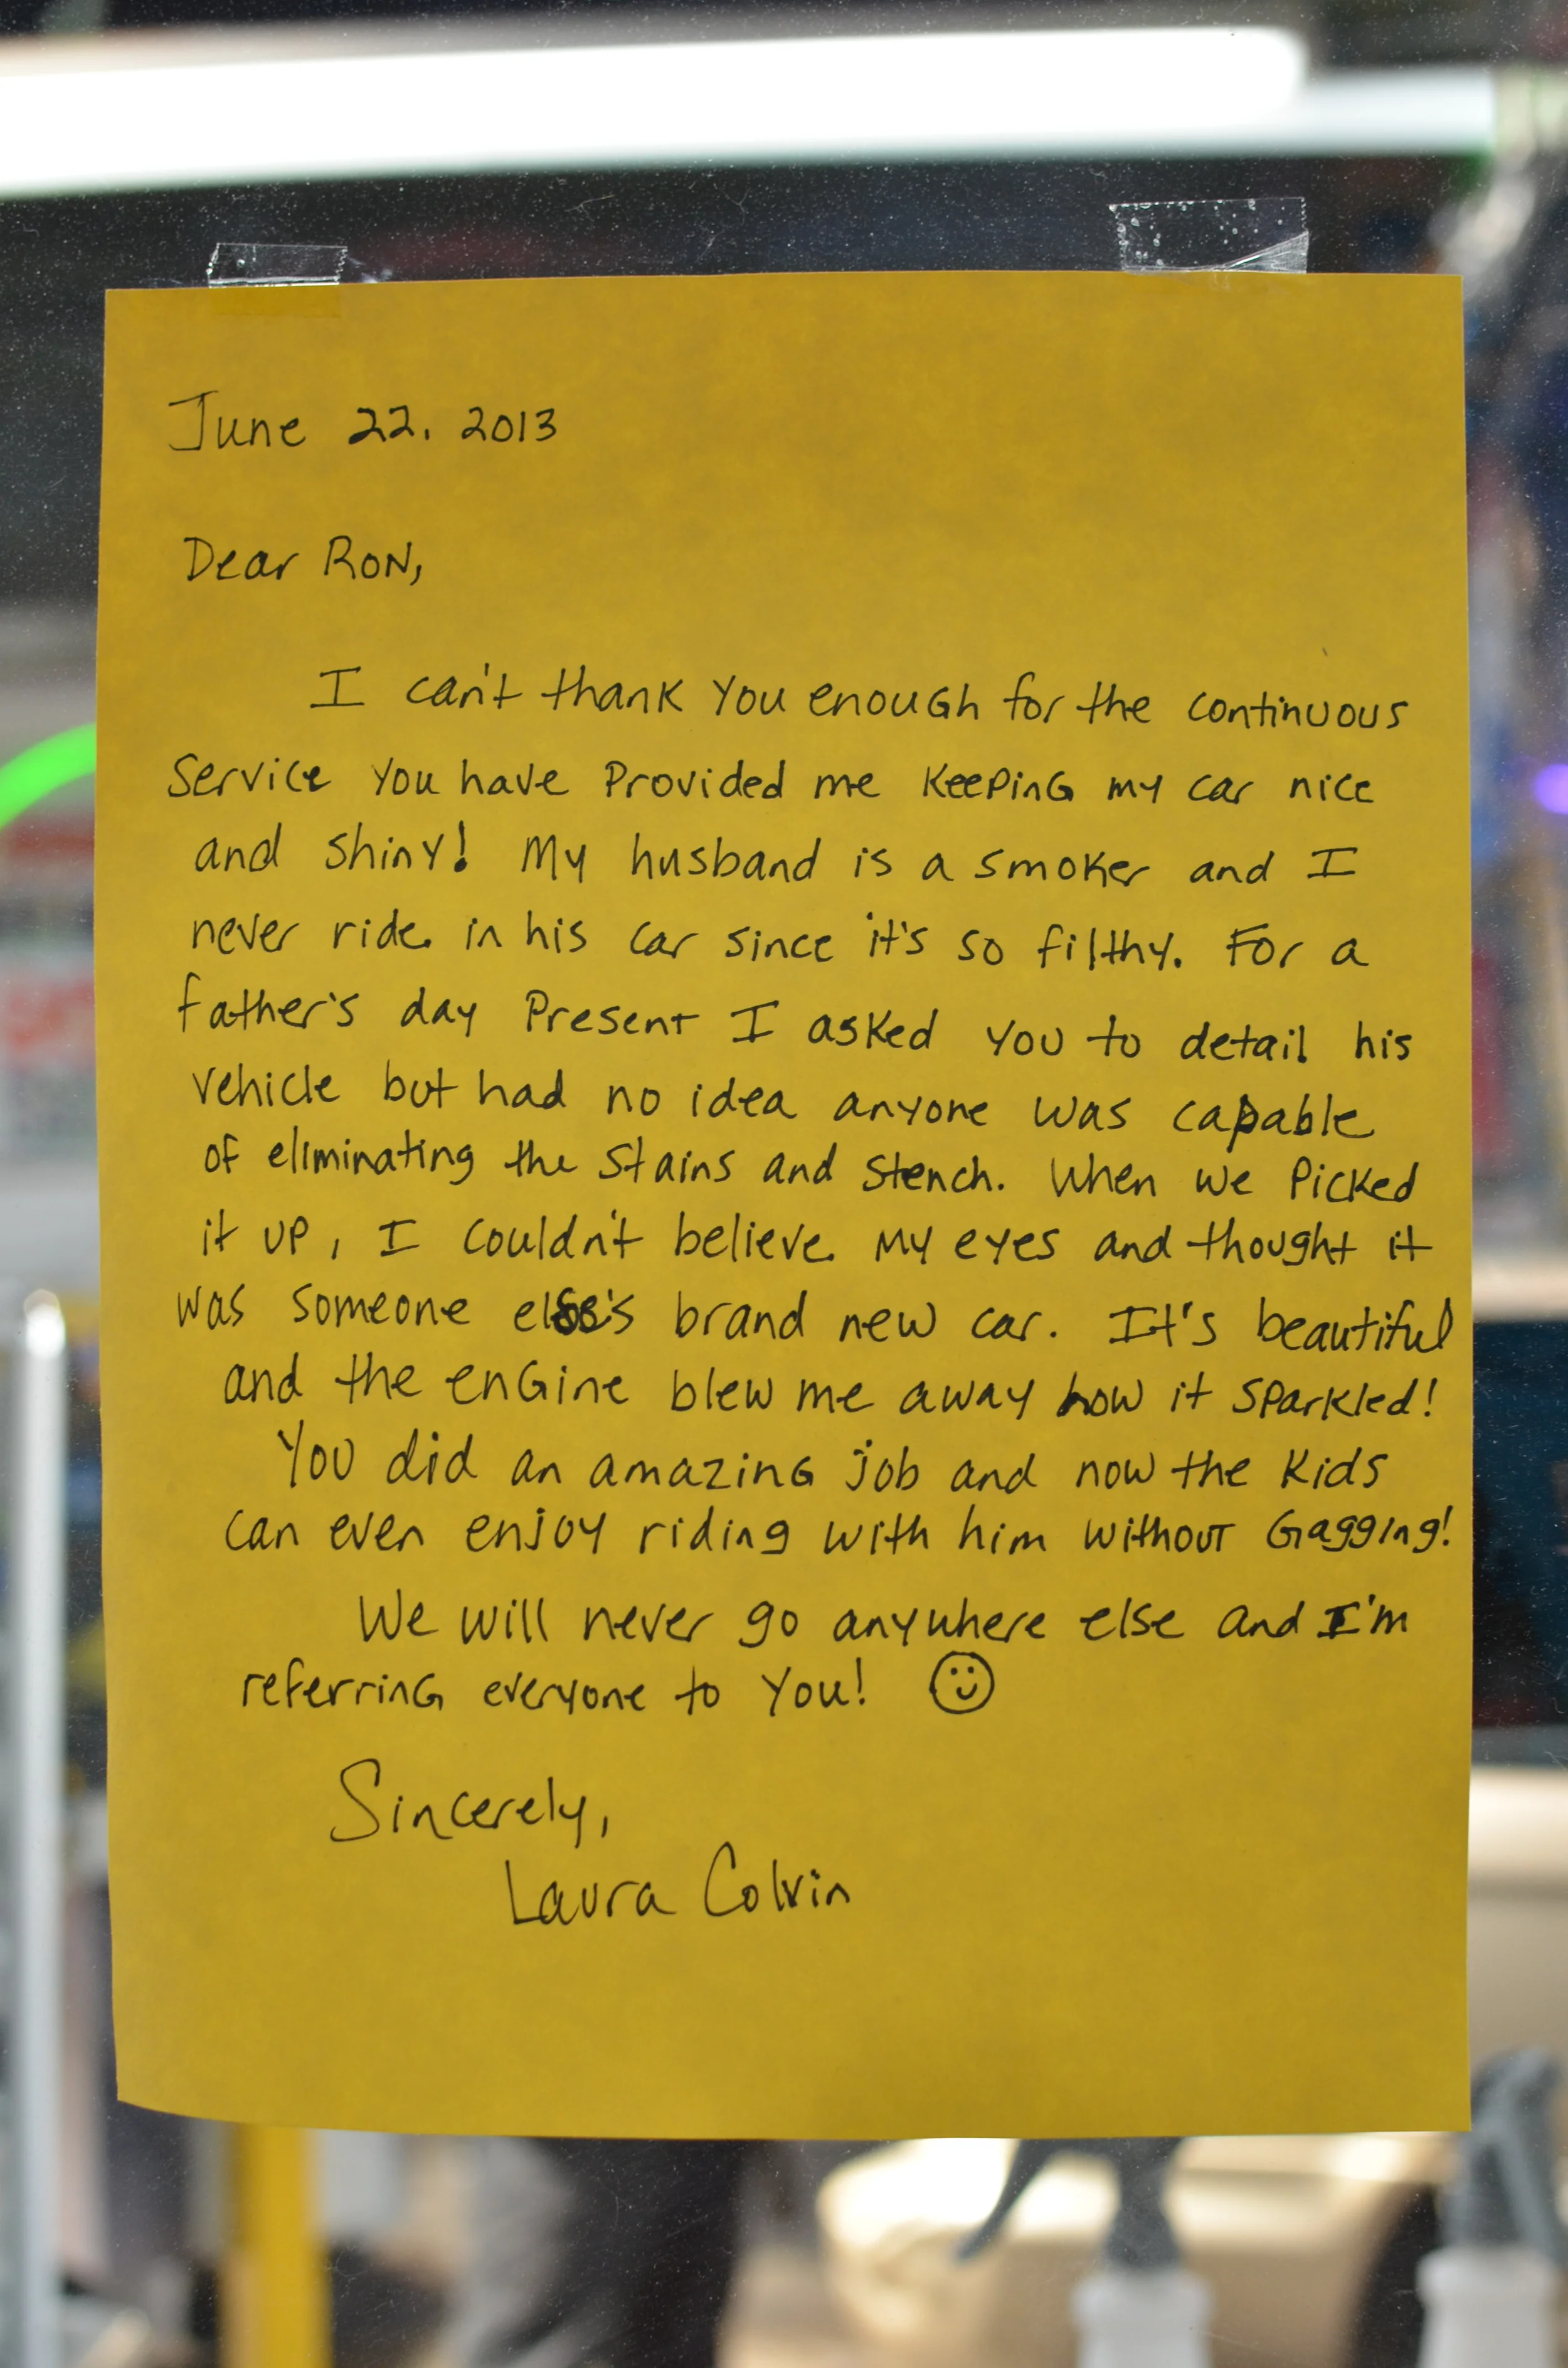 June 22. 2013
Dear RON,
I can't thank you enough for the continuous
service you have Provided me keeping my car nice
and shiny! My husband is a smoker and I
never ride in his car since it's so filthy. For a
father's day Present I asked you to detail his
vehicle but had no idea anyone was capable
of eliminating the stains and stench. When we Picked
it up, I couldn't believe my eyes and thought it
was someone else's brand new car. It's beautiful
and the engine blew me away how it sparkled!
You did an amazing job and now the kids
can even enjoy riding with him without Gagging!
We will never go anywhere else and I'm
referring everyone to you! ☺
Sincerely,
Laura Colvin